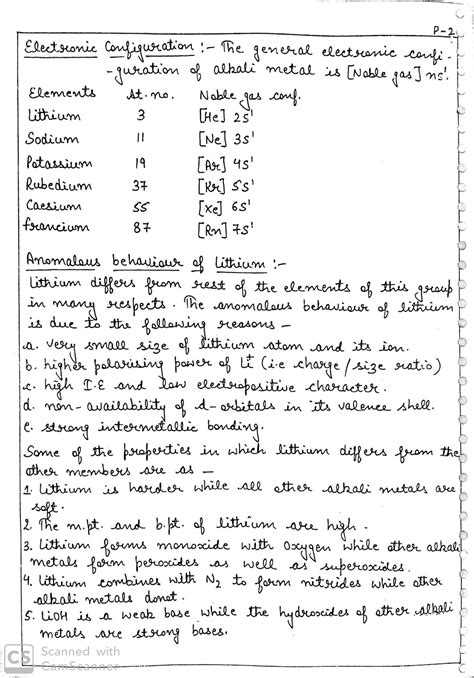 P-2
Electronic Configuration :- The general electronic confi-
-guration of alkali metal is [Noble gas] ns¹.
Elements At. no. Noble gas conf.
Lithium 3 [He] 2s¹
Sodium 11 [Ne] 3s¹
Potassium 19 [Ar] 4s¹
Rubedium 37 [Kr] 5s¹
Caesium 55 [Xe] 6s¹
francium 87 [Rn] 7s¹
Anomalous behaviour of Lithium :-
Lithium differs from rest of the elements of this group
in many respects. The anomalous behaviour of lithium
is due to the following reasons –
a. very small size of lithium atom and its ion.
b. higher polarising power of Li⁺ (i.e charge/size ratio)
c. high I.E and low electropositive character.
d. non-availability of d-orbitals in its valence shell.
e. strong intermetallic bonding.
Some of the properties in which lithium differs from the
other members are as –
1. Lithium is harder while all other alkali metals are
soft.
2. The m.pt. and b.pt. of lithium are high.
3. Lithium forms monoxide with Oxygen while other alkali
metals form peroxides as well as superoxides.
4. Lithium combines with N₂ to form nitrides while other
alkali metals donot.
5. LiOH is a weak base while the hydroxides of other alkali
metals are strong bases.
CS Scanned with
CamScanner